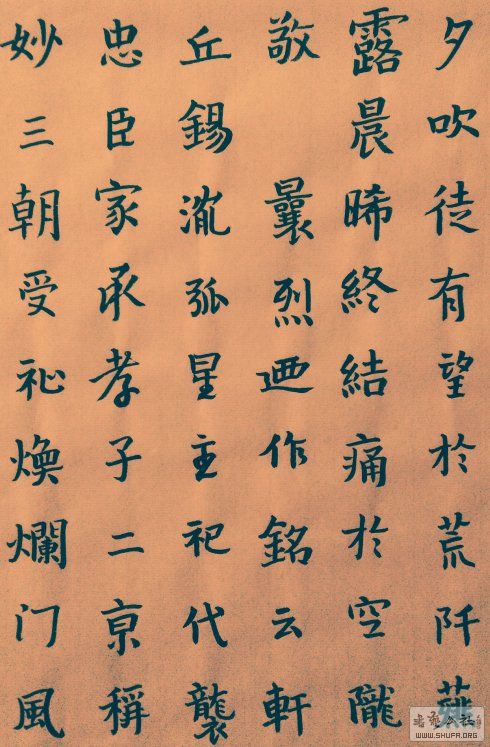 夕吹徒有望於荒阡
露晨晞終結痛於空隴
敬 曩烈迺作銘云軒
丘錫胤弧星主祀代襲
忠臣家承孝子二亰稱
妙三朝受祉煥爛门風
WWW.SHUFA.ORG